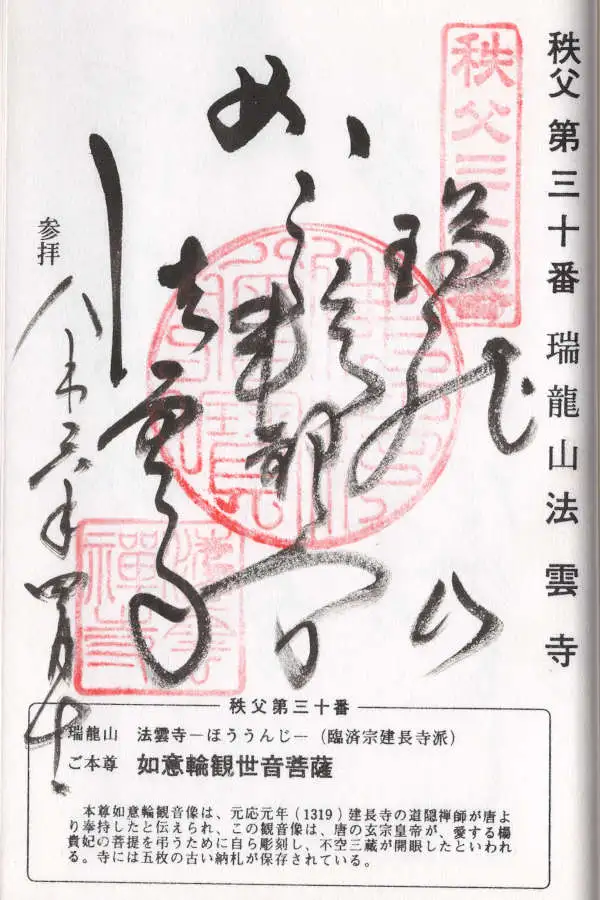 秩父第三十番 瑞龍山法雲寺
秩父三十番
瑞龍山
如意輪観
法雲寺
参拝
秩父第三十番
瑞龍山 法雲寺―ほううんじ―（臨済宗建長寺派）
ご本尊 如意輪観世音菩薩
本尊如意輪観音像は、元応元年（1319）建長寺の道隠禅師が唐よ
り奉持したと伝えられ、この観音像は、唐の玄宗皇帝が、愛する楊
貴妃の菩提を弔うために自ら彫刻し、不空三蔵が開眼したといわれ
る。寺には五枚の古い納札が保存されている。